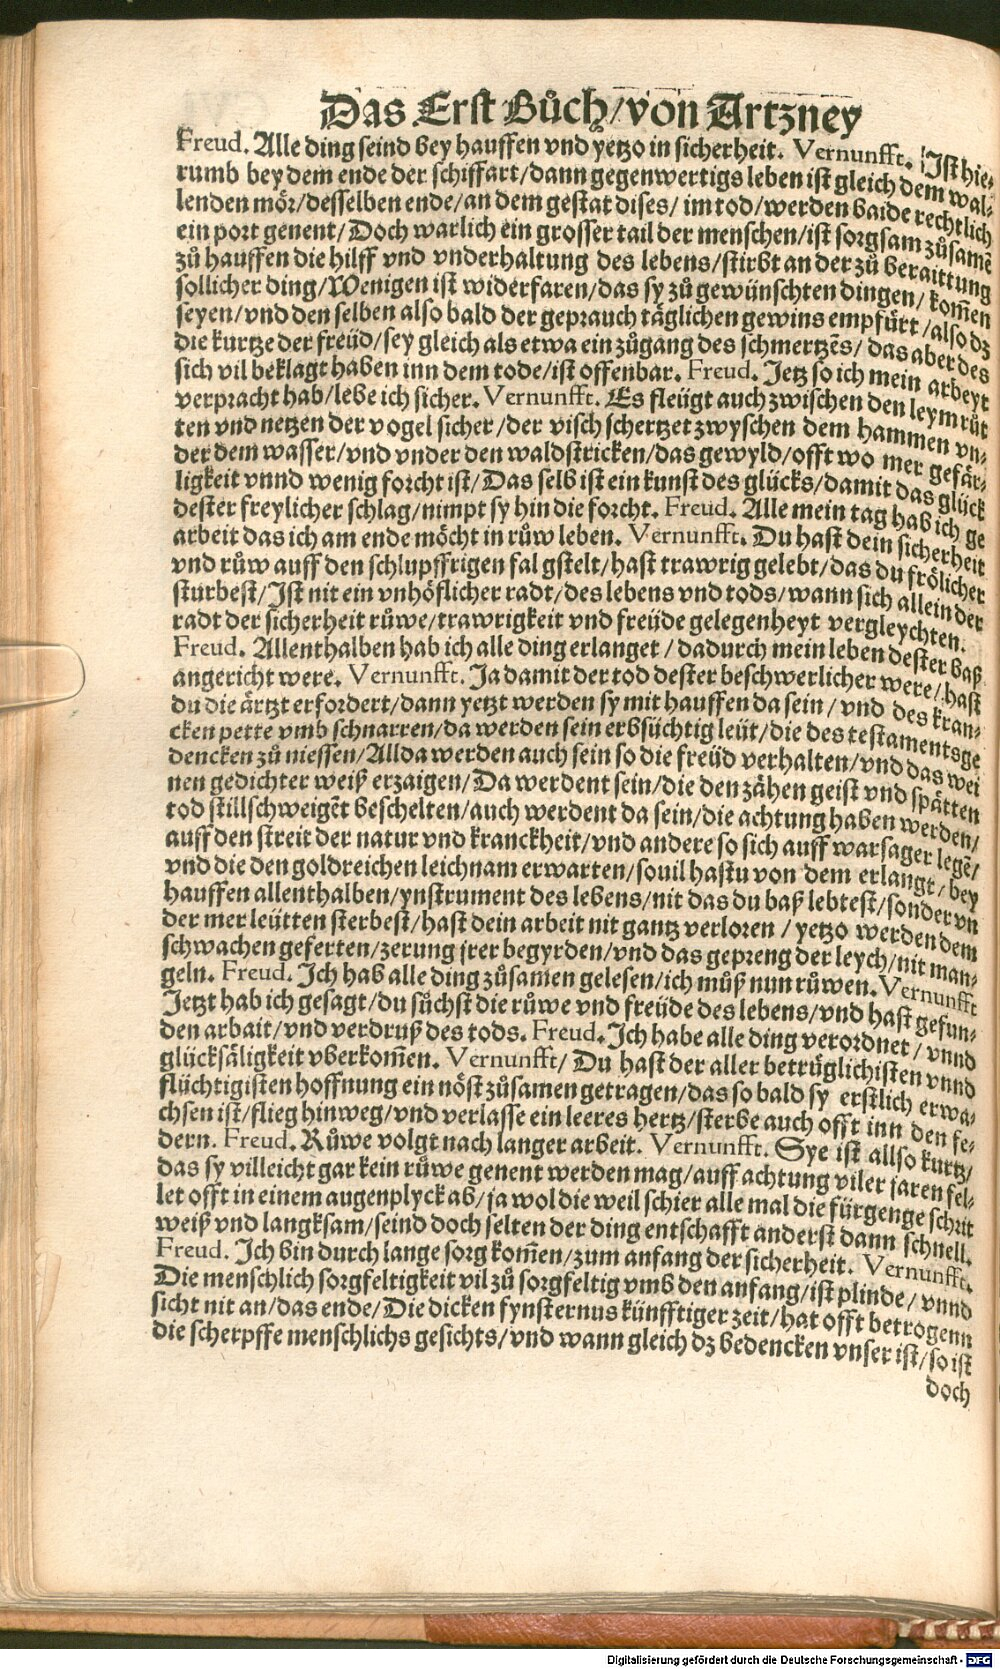 Das Erst Bůch/von Artzney
Freud. Alle ding seind bey hauffen vnd yetzo in sicherheit. Vernunfft. Ist hie-
rumb bey dem ende der schiffart/dann gegenwertigs leben ist gleich dem wal-
lenden mör/desselben ende/an dem gestat dises/ im tod/werden baide rechtlich
ein port genent/Doch warlich ein grosser tail der menschen/ist sorgsam zůsamẽ
zů hauffen die hilff vnd vnderhaltung des lebens/stirbt an der zů beraittung
sollicher ding/Wenigen ist widerfaren/das sy zů gewünschten dingen/ kom̃en
seyen/vnd den selben also bald der geprauch täglichen gewins empfürt/also dz
die kurtze der freüd/sey gleich als etwa ein zůgang des schmertzẽs/ das aber des
sich vil beklagt haben inn dem tode/ist offenbar. Freud. Jetz so ich mein arbeyt
verpracht hab/lebe ich sicher. Vernunfft. Es fleügt auch zwischen den leymrůt
ten vnd netzen der vogel sicher/der visch schertzet zwyschen dem hammen vn-
der dem wasser/vnd vnder den waldstricken/das gewyld/offt wo mer gefär-
ligkeit vnnd wenig forcht ist/Das selb ist ein kunst des glücks/damit das glück
dester freylicher schlag/nimpt sy hin die forcht. Freud. Alle mein tag hab ich ge
arbeit das ich am ende möcht in růw leben. Vernunfft. Du hast dein sicherheit
vnd růw auff den schlupffrigen fal gstelt/hast trawrig gelebt/das du frölicher
sturbest/Ist nit ein vnhöflicher radt/des lebens vnd tods/wann sich allein der
radt der sicherheit růwe/trawrigkeit vnd freüde gelegenheyt vergleychten.
Freud. Allenthalben hab ich alle ding erlanget/ dadurch mein leben dester baß
angericht were. Vernunfft. Ja damit der tod dester beschwerlicher were/hast
du die ärtzt erfordert/dann yetzt werden sy mit hauffen da sein/ vnd des kran-
cken pette vmb schnarren/da werden sein erbsüchtig leüt/die des testamentsge
dencken zů niessen/Allda werden auch sein so die freüd verhalten/vnd das wei
nen gedichter weiß erzaigen/Da werdent sein/die den zähen geist vnd spätten
tod stillschweigẽt beschelten/auch werdent da sein/die achtung haben werden/
auff den streit der natur vnd kranckheit/vnd andere so sich auff warsager legẽ/
vnd die den goldreichen leichnam erwarten/souil hastu von dem erlangt/bey
hauffen allenthalben/ynstrument des lebens/nit das du baß lebtest/sonder vn
der mer leütten sterbest/hast dein arbeit nit gantz verloren/ yetzo werden dem
schwachen geferten/zerung jrer begyrden/vnd das gepreng der leych/nit man-
geln. Freud. Ich hab alle ding zůsamen gelesen/ich můß nun růwen. Vernunfft
Jetzt hab ich gesagt/du sůchst die růwe vnd freüde des lebens/vnd hast gefun-
den arbait/vnd verdruß des tods. Freud. Ich habe alle ding verordnet/ vnnd
glücksäligkeit vberkom̃en. Vernunfft/ Du hast der aller betrüglichisten vnnd
flüchtigisten hoffnung ein nöst zůsamen getragen/das so bald sy erstlich erwa-
chsen ist/flieg hinweg/vnd verlasse ein leeres hertz/sterbe auch offt inn den fe-
dern. Freud. Růwe volgt nach langer arbeit. Vernunfft. Sye ist allso kurtz/
das sy villeicht gar kein růwe genent werden mag/auff achtung viler jaren fel-
let offt in einem augenplyck ab/ja wol die weil schier alle mal die fürgenge schrit
weiß vnd langksam/seind doch selten der ding entschafft anderst dann schnell.
Freud. Ich bin durch lange sorg kom̃en/zum anfang der sicherheit. Vernunfft.
Die menschlich sorgfeltigkeit vil zů sorgfeltig vmb den anfang/ist plinde/ vnnd
sicht nit an/das ende/Die dicken fynsternus künfftiger zeit/hat offt betrogenn
die scherpffe menschlichs gesichts/vnd wann gleich dz bedencken vnser ist/so ist
doch
Digitalisierung gefördert durch die Deutsche Forschungsgemeinschaft - DFG